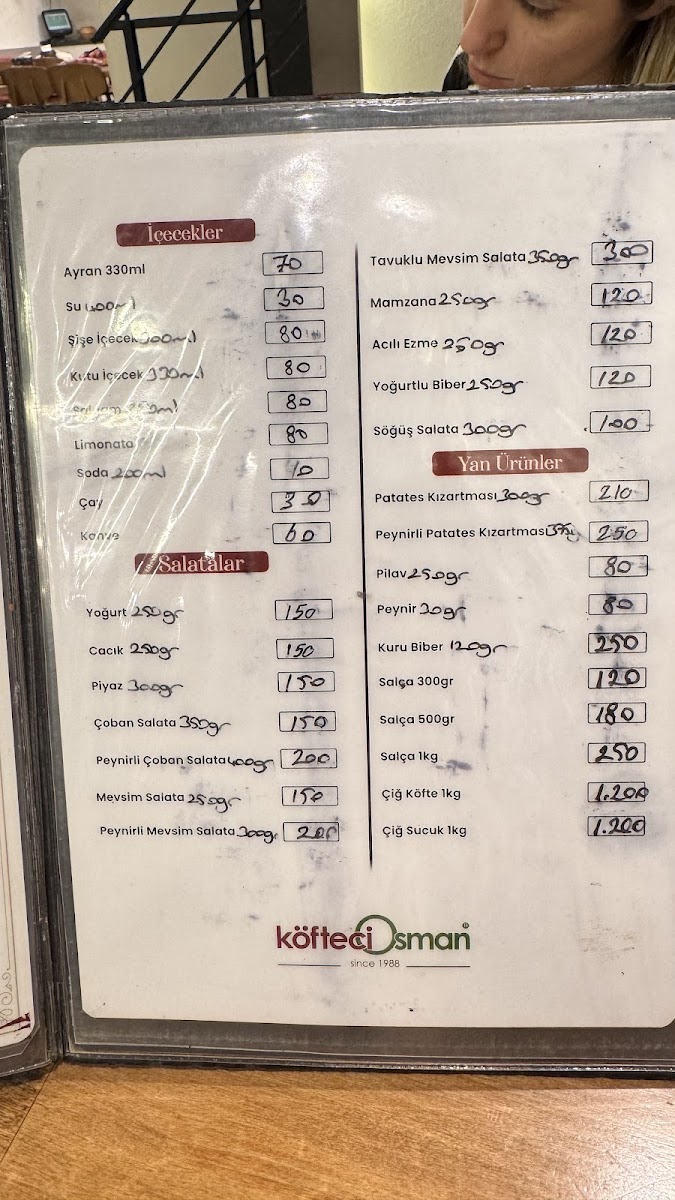 İçecekler
Ayran 330ml 70
Su 30
Şişe İçecek 80
Kutu İçecek 330ml 80
250ml 80
Limonata 80
Soda 200ml
Çay 30
Kahve 60
Salatalar
Yoğurt 250gr 150
Cacık 250gr 150
Piyaz 300gr 150
Çoban Salata 350gr 150
Peynirli Çoban Salata 400gr 200
Mevsim Salata 250gr 150
Peynirli Mevsim Salata 300gr 200
Tavuklu Mevsim Salata 350gr 300
Mamzana 250gr 120
Acılı Ezme 250gr 120
Yoğurtlu Biber 250gr 120
Söğüş Salata 300gr 100
Yan Ürünler
Patates Kızartması 300gr 210
Peynirli Patates Kızartması 250
Pilav 250gr 80
Peynir 30gr 80
Kuru Biber 120gr 250
Salça 300gr 120
Salça 500gr 180
Salça 1kg 250
Çiğ Köfte 1kg 1.200
Çiğ Sucuk 1kg 1.200
köfteci Osman
since 1988